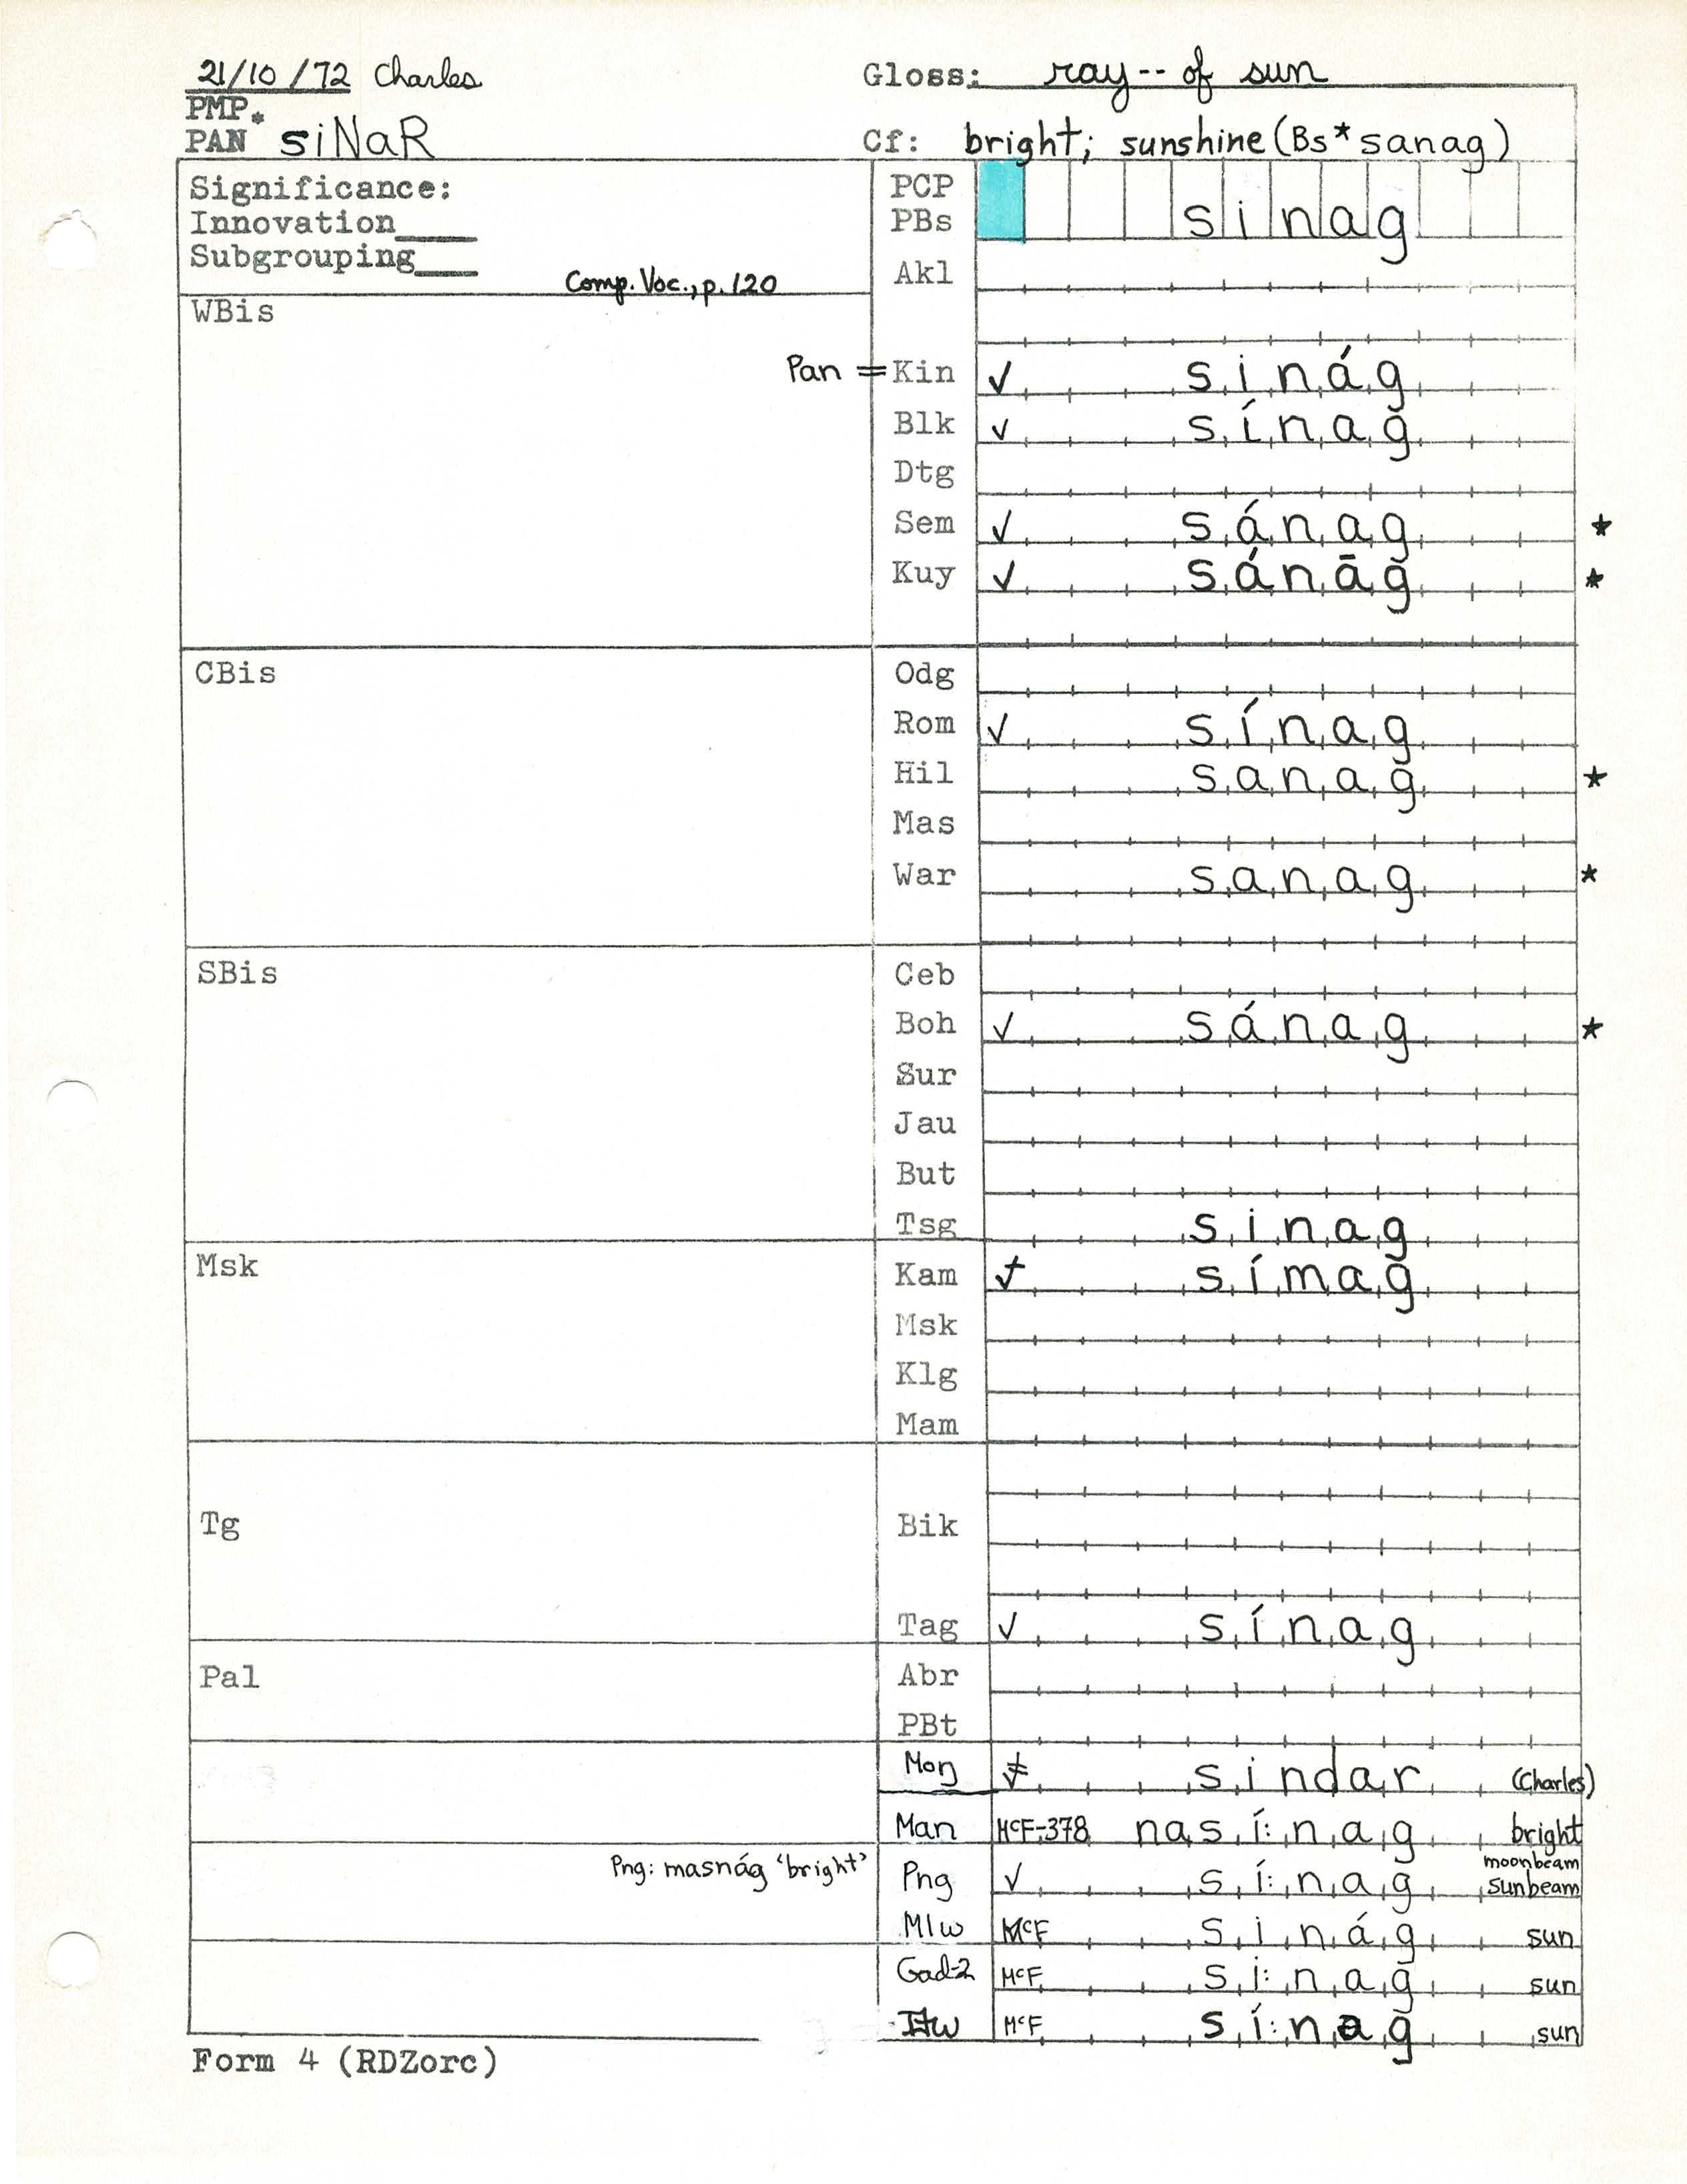 21/10/72 Charles Gloss: ray -- of sun
PMP
PAN *siNaR Cf: bright; sunshine (Bs*sanag)
Significance: PCP
Innovation____ PBs sinag
Subgrouping___
Comp. Voc., p. 120 Akl
WBis
Pan = Kin ✓ sinág
Blk ✓ sínag
Dtg
Sem ✓ sánag ★
Kuy ✓ sánāg ★
CBis Odg
Rom ✓ sínag
Hil sanag ★
Mas
War sanag ★
SBis Ceb
Boh ✓ sánag ★
Sur
Jau
But
Tsg sinag
Msk Kam símag
Msk
Klg
Mam
Tg Bik
Tag ✓ sínag
Pal Abr
PBt
sindar (Charles)
Man McF-378 nasí:nag bright
Png: masnág 'bright' Png ✓ sí:nag moonbeam
sunbeam
Mlw McF sinág sun
Gad-2 McF si:nag sun
Itw McF sí:nag sun
Form 4 (RDZorc)